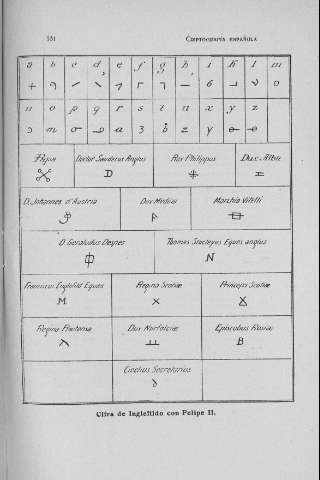 131 CRIPTOGRAFÍA ESPAÑOLA
a b c d e f g h i k l m
n o p q r s t u x y z
Papa Doctor Sanderus Anglus Rex Philippus Dux Albæ
D. Johannes d'Austria Dux Medine Marchio Vitelli
D. Geraldus Despes Thomas Stucleyus Eques anglus
Franciscus Englefild Eques Regina Scotiæ Princeps Scotiæ
Regina Dux Norfolciæ Episcobus Rossay
Cicelius Secretarius
Cifra de Inglefildo con Felipe II.